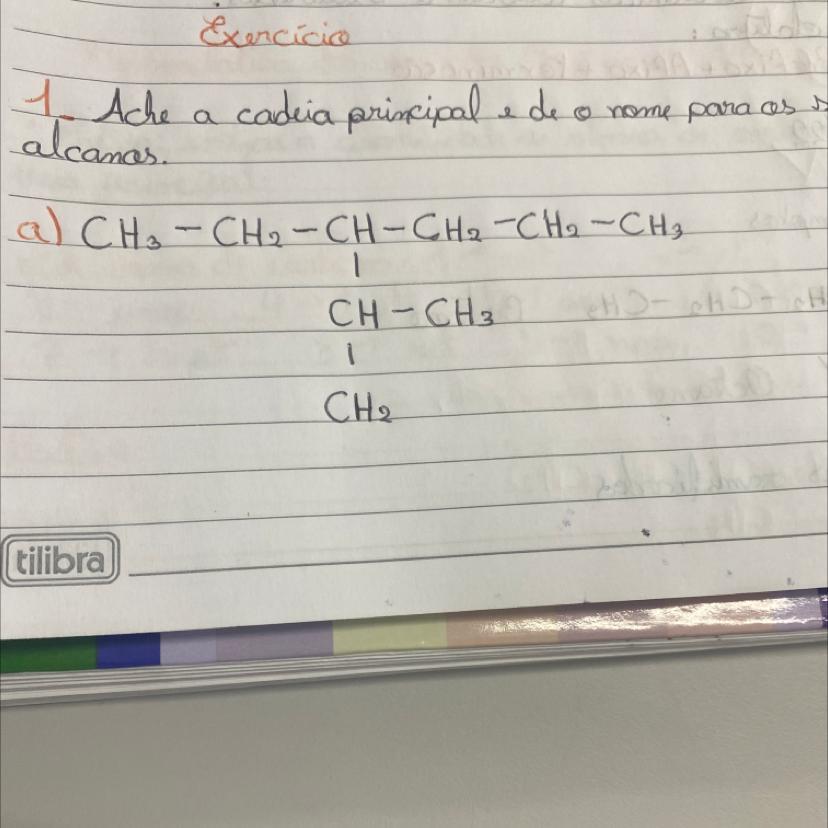 Exercício
1- Ache a cadeia principal e de o nome para os s
alcanos.
a) CH3 - CH2 - CH - CH2 - CH2 - CH3
|
CH - CH3
|
CH2
tilibra